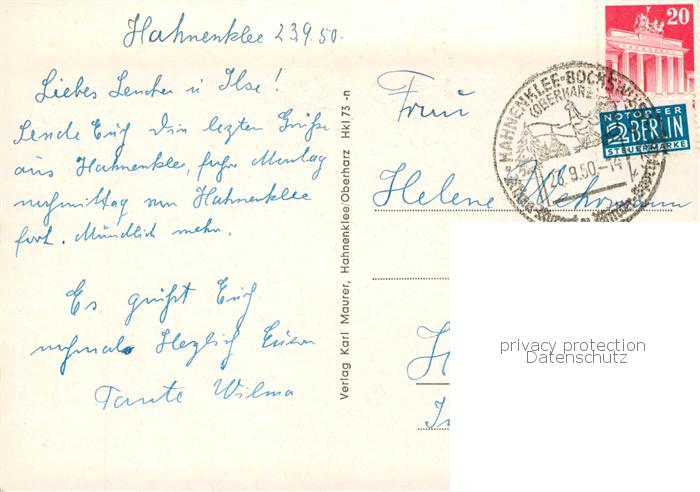 Hahnenklee 23.9.50.
Liebes Lenchen u Ilse!
Sende Euch den lezten Grüße
aus Hahnenklee, fahre Montag
nachmittag von Hahnenklee
fort. Mündlich mehr.
Es grüßt Euch
nochmals Herzlich Eure
Tante Wilma
Verlag Karl Maurer, Hahnenklee/Oberharz Hkl 73-n
Frau
Helene
20
NOTOPFER
2 BERLIN
STEUERMARKE
HAHNENKLEE-BOCKSWIESE
(OBERHARZ)
9.50-14
H
privacy protection
Datenschutz